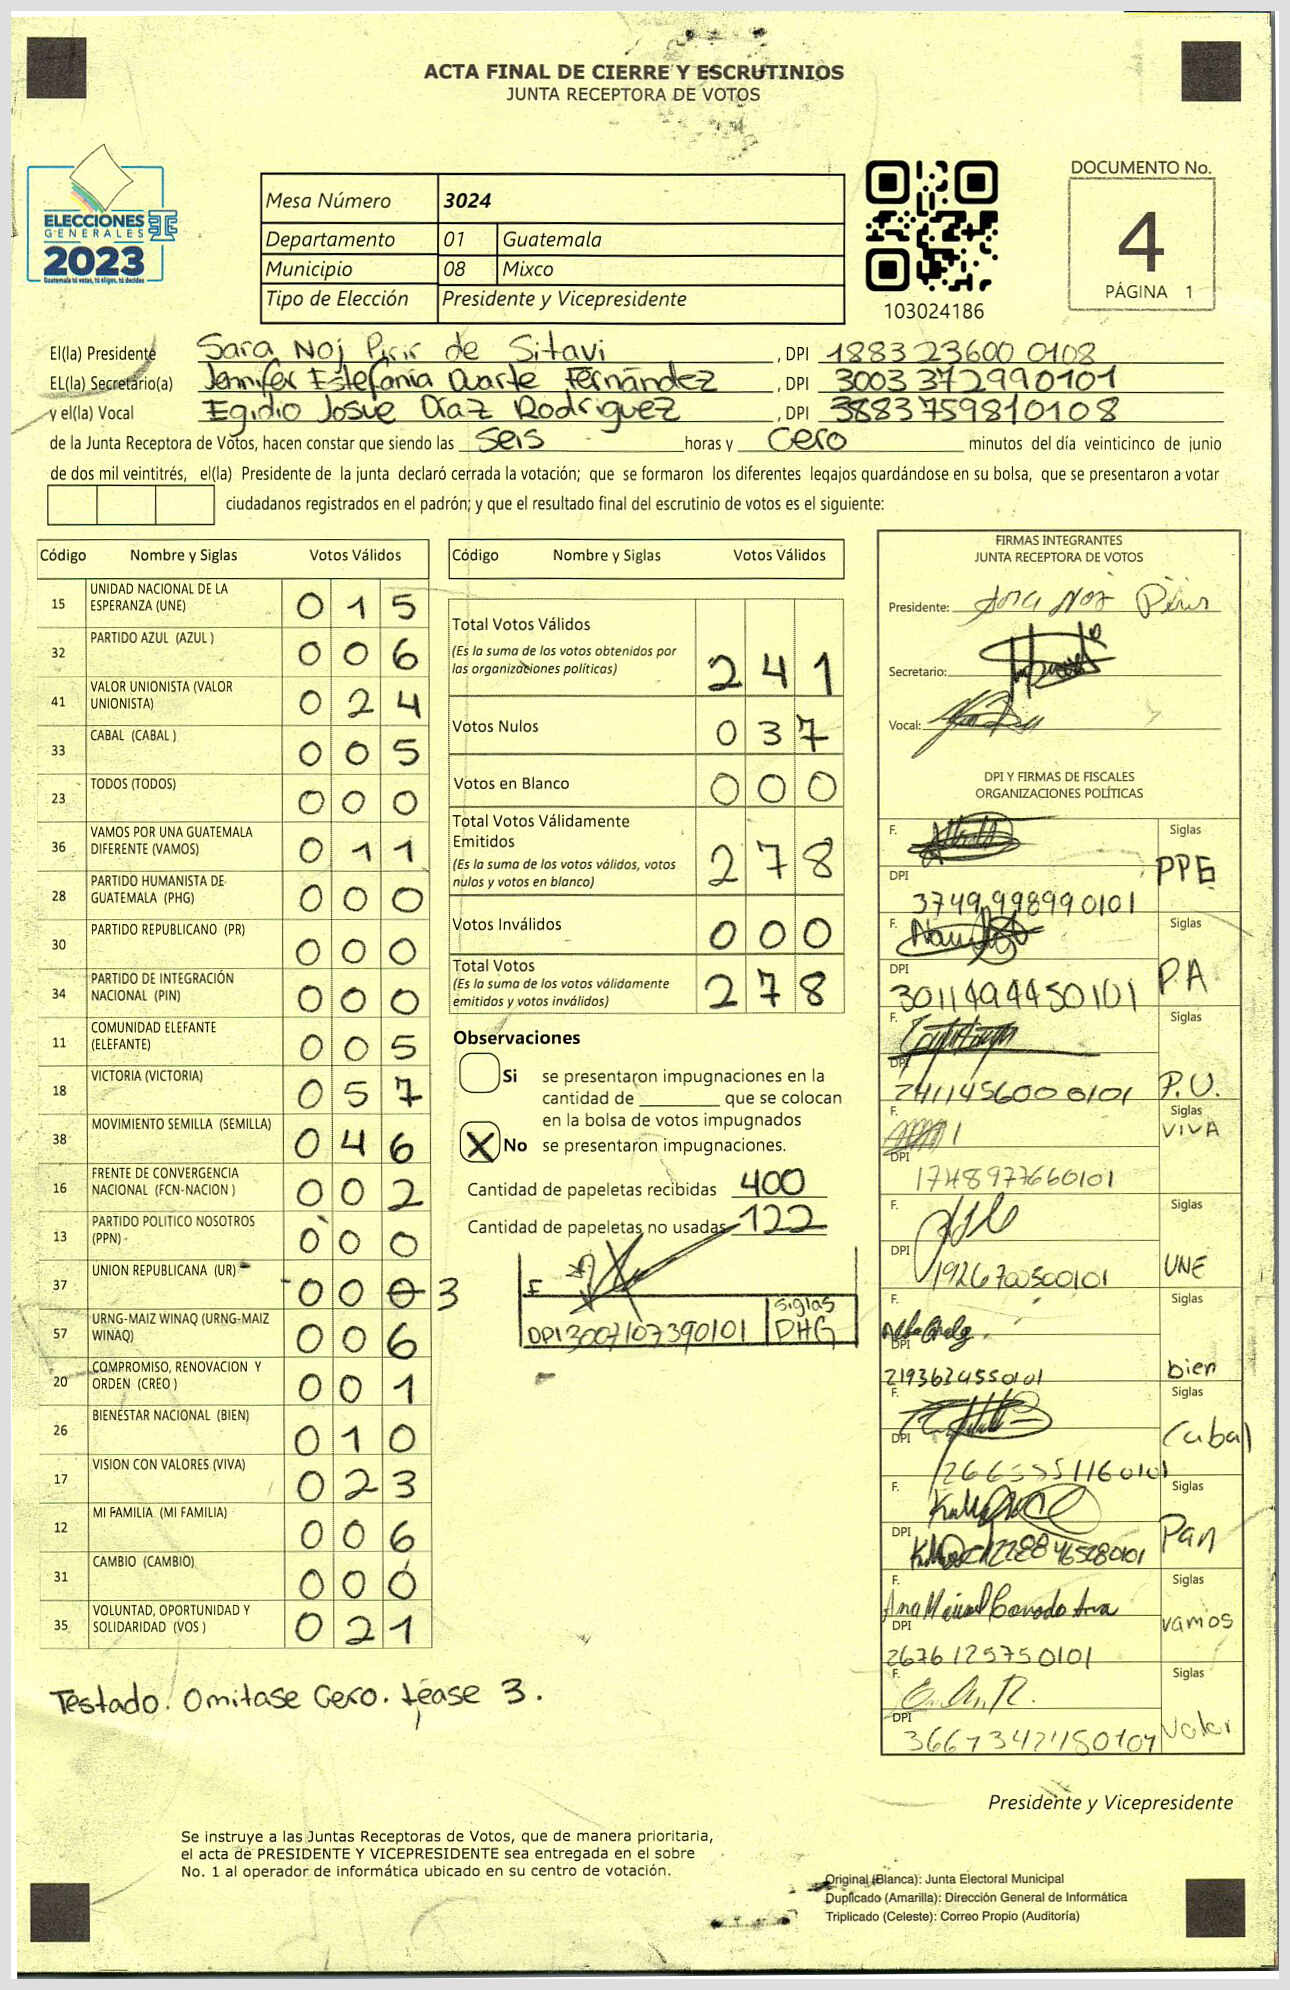 ACTA FINAL DE CIERRE Y ESCRUTINIOS
JUNTA RECEPTORA DE VOTOS
ELECCIONES
GENERALES
2023
Guatemala tú votas, tú eliges, tú decides
Mesa Número 3024
Departamento 01 Guatemala
Municipio 08 Mixco
Tipo de Elección Presidente y Vicepresidente
103024186
DOCUMENTO No.
4
PÁGINA 1
El(la) Presidente Sara Noj Pirir de Sitavi , DPI 1883 23600 0108
EL(la) Secretario(a) Jennifer Estefanía Duarte Fernández , DPI 3003 372990101
y el(la) Vocal Egidio Josue Díaz Rodriguez , DPI 3883759810108
de la Junta Receptora de Votos, hacen constar que siendo las seis horas y cero minutos del día veinticinco de junio
de dos mil veintitrés, el(la) Presidente de la junta declaró cerrada la votación; que se formaron los diferentes legajos guardándose en su bolsa, que se presentaron a votar
ciudadanos registrados en el padrón; y que el resultado final del escrutinio de votos es el siguiente:
Código Nombre y Siglas Votos Válidos
15 UNIDAD NACIONAL DE LA ESPERANZA (UNE) 0 1 5
32 PARTIDO AZUL (AZUL ) 0 0 6
41 VALOR UNIONISTA (VALOR UNIONISTA) 0 2 4
33 CABAL (CABAL ) 0 0 5
23 TODOS (TODOS) 0 0 0
36 VAMOS POR UNA GUATEMALA DIFERENTE (VAMOS) 0 1 1
28 PARTIDO HUMANISTA DE GUATEMALA (PHG) 0 0 0
30 PARTIDO REPUBLICANO (PR) 0 0 0
34 PARTIDO DE INTEGRACIÓN NACIONAL (PIN) 0 0 0
11 COMUNIDAD ELEFANTE (ELEFANTE) 0 0 5
18 VICTORIA (VICTORIA) 0 5 7
38 MOVIMIENTO SEMILLA (SEMILLA) 0 4 6
16 FRENTE DE CONVERGENCIA NACIONAL (FCN-NACION ) 0 0 2
13 PARTIDO POLITICO NOSOTROS (PPN) 0 0 0
37 UNION REPUBLICANA (UR) 0 0 0 3
57 URNG-MAIZ WINAQ (URNG-MAIZ WINAQ) 0 0 6
20 COMPROMISO, RENOVACION Y ORDEN (CREO ) 0 0 1
26 BIENESTAR NACIONAL (BIEN) 0 1 0
17 VISION CON VALORES (VIVA) 0 2 3
12 MI FAMILIA (MI FAMILIA) 0 0 6
31 CAMBIO (CAMBIO) 0 0 0
35 VOLUNTAD, OPORTUNIDAD Y SOLIDARIDAD (VOS ) 0 2 1
Testado. Omitase Cero. Léase 3.
Código Nombre y Siglas Votos Válidos
Total Votos Válidos 2 4 1
(Es la suma de los votos obtenidos por
las organizaciones políticas)
Votos Nulos 0 3 7
Votos en Blanco 0 0 0
Total Votos Válidamente
Emitidos 2 7 8
(Es la suma de los votos válidos, votos
nulos y votos en blanco)
Votos Inválidos 0 0 0
Total Votos 2 7 8
(Es la suma de los votos válidamente
emitidos y votos inválidos)
Observaciones
Si se presentaron impugnaciones en la
cantidad de ________ que se colocan
en la bolsa de votos impugnados
X No se presentaron impugnaciones.
Cantidad de papeletas recibidas 400
Cantidad de papeletas no usadas 122
F
DPI 3007107390101
siglas
PHG
FIRMAS INTEGRANTES
JUNTA RECEPTORA DE VOTOS
Presidente: Sara Noj Pirir
Secretario:
Vocal:
DPI Y FIRMAS DE FISCALES
ORGANIZACIONES POLÍTICAS
F. Siglas
DPI PPE
3749998990101
F. Siglas
DPI P.A
3011494450101
F. Siglas
DPI P.U.
241145600 0101
F. Siglas
DPI VIVA
1748977660101
F. Siglas
DPI UNE
1926700500101
F. Siglas
DPI bien
2193634550101
F. Siglas
DPI Cabal
F. Siglas
DPI Pan
2288465280101
F. Siglas
DPI vamos
2676125750101
F. Siglas
DPI Valor
Presidente y Vicepresidente
Se instruye a las Juntas Receptoras de Votos, que de manera prioritaria,
el acta de PRESIDENTE Y VICEPRESIDENTE sea entregada en el sobre
No. 1 al operador de informática ubicado en su centro de votación.
Original (Blanca): Junta Electoral Municipal
Duplicado (Amarilla): Dirección General de Informática
Triplicado (Celeste): Correo Propio (Auditoría)